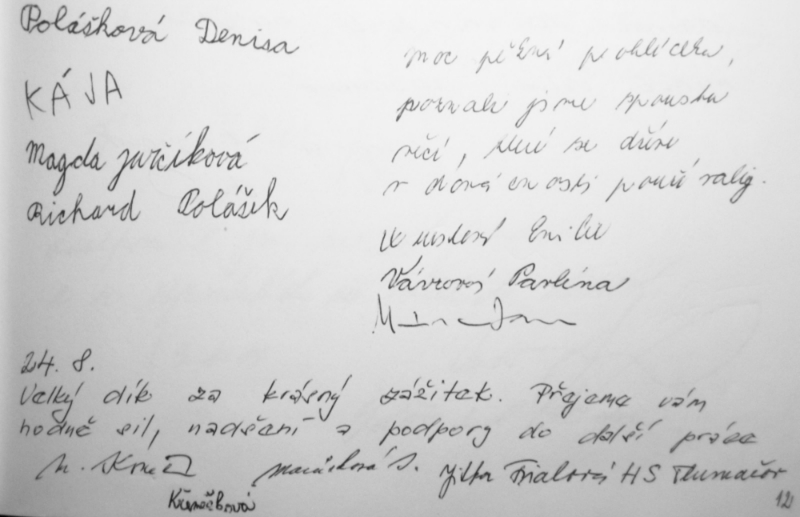 Polášková Denisa
KÁJA
Magda Jurčíková
Richard Polášek
moc pěkná prohlídka,
poznali jsme spoustu
věcí, které se dříve
v domácnosti používaly.
Vávrová Pavlína
24. 8.
Velký dík za krásný zážitek. Přejeme vám
hodně sil, nadšení a podpory do další práce
Jitka Fialová HS Tlumačov
12